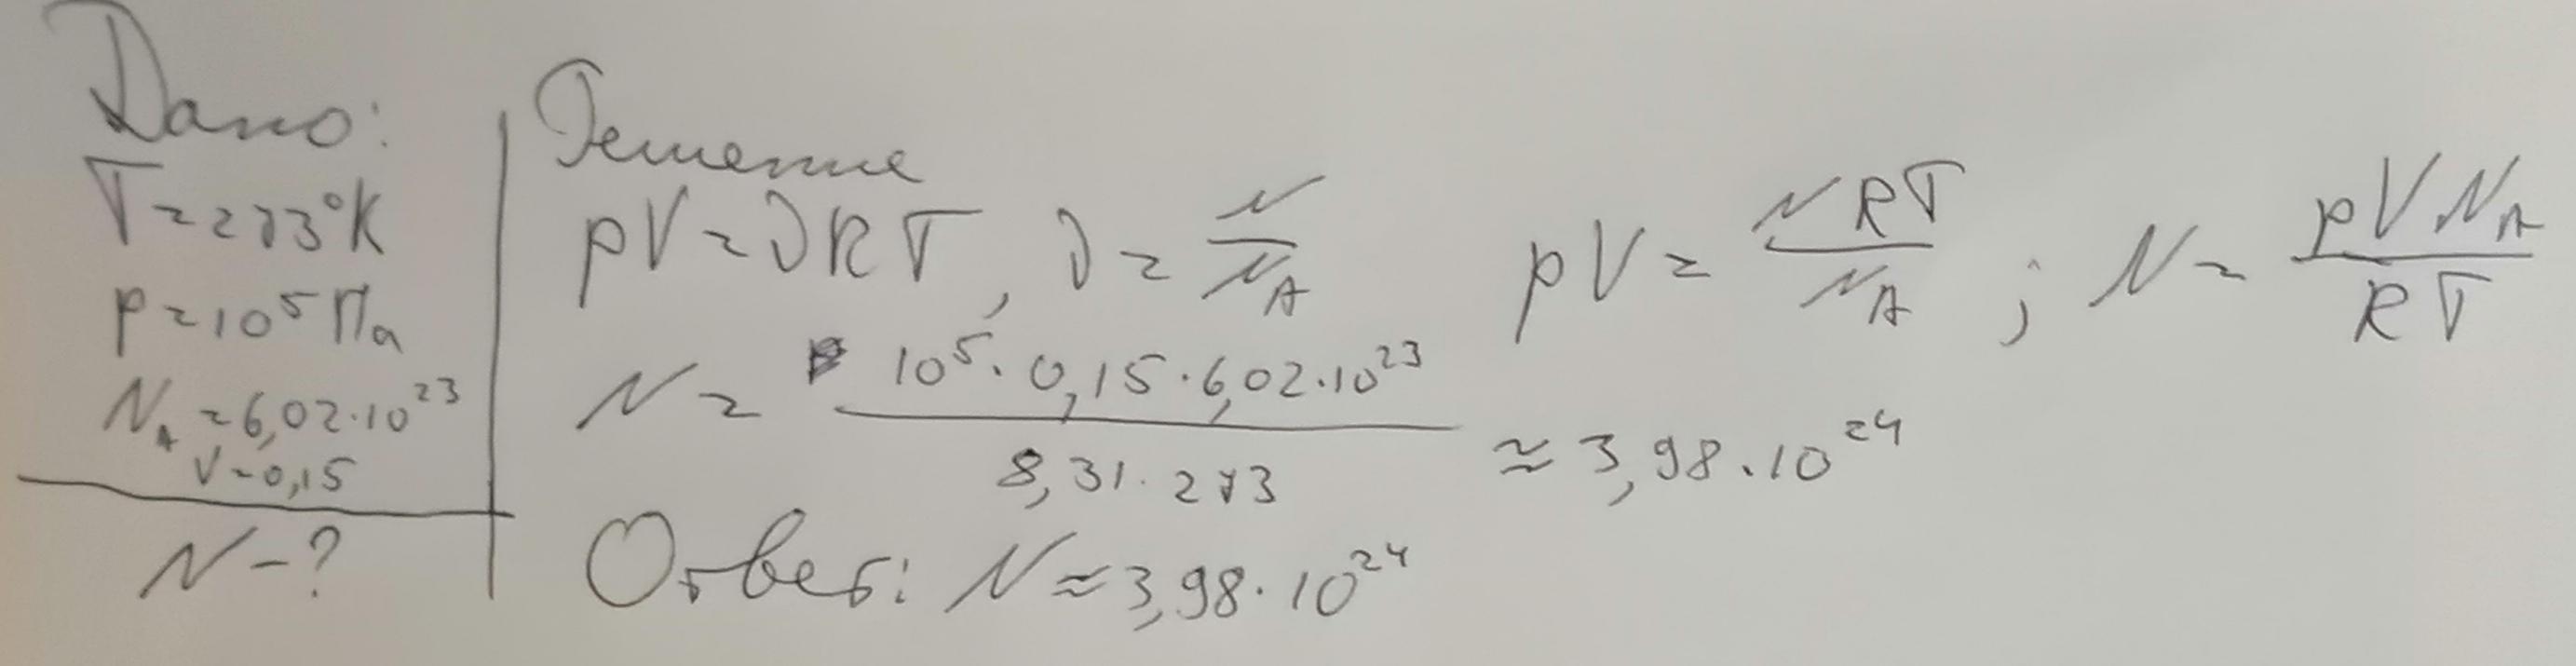 Дано:
T = 273°K
p = 10⁵ Па
N_A = 6,02·10²³
V = 0,15
N - ?
Решение
pV = νRT, ν = N/N_A pV = NRT/N_A ; N = pVN_A/RT
N = 10⁵·0,15·6,02·10²³/8,31·273 ≈ 3,98·10²⁴
Ответ: N ≈ 3,98·10²⁴